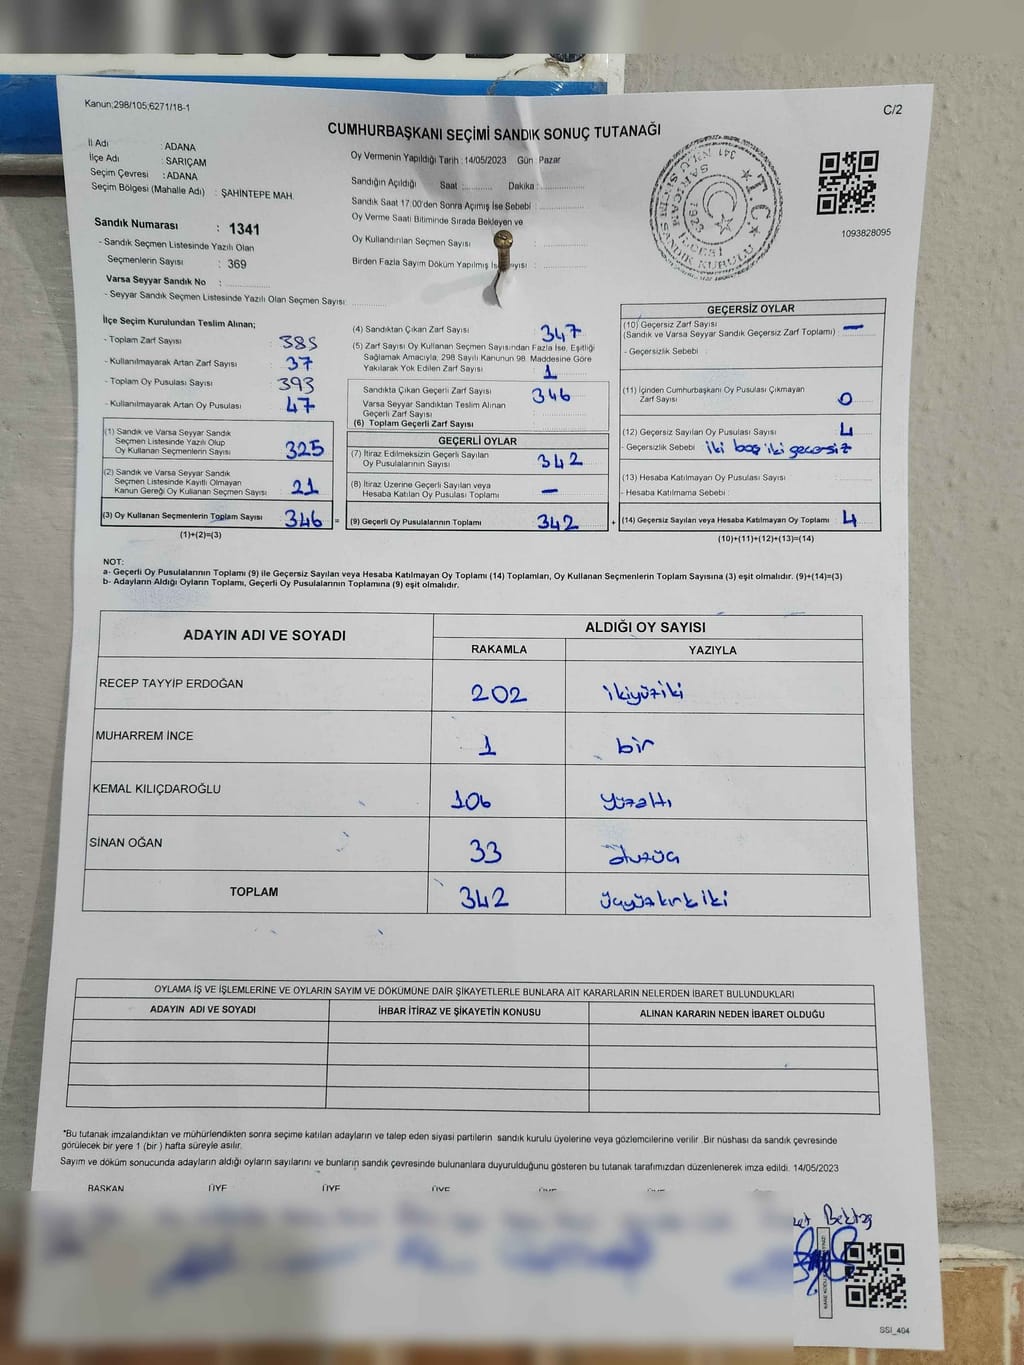 Kanun;298/105;6271/18-1
C/2
CUMHURBAŞKANI SEÇİMİ SANDIK SONUÇ TUTANAĞI
İl Adı : ADANA
İlçe Adı : SARIÇAM
Seçim Çevresi : ADANA
Seçim Bölgesi (Mahalle Adı) : ŞAHİNTEPE MAH.
Sandık Numarası : 1341
- Sandık Seçmen Listesinde Yazılı Olan
Seçmenlerin Sayısı : 369
Varsa Seyyar Sandık No :
- Seyyar Sandık Seçmen Listesinde Yazılı Olan Seçmen Sayısı:
Oy Vermenin Yapıldığı Tarih :14/05/2023 Gün : Pazar
Sandığın Açıldığı Saat : Dakika :
Sandık Saat 17.00'den Sonra Açımış İse Sebebi :
Oy Verme Saati Bitiminde Sırada Bekleyen ve
Oy Kullandırılan Seçmen Sayısı :
Birden Fazla Sayım Döküm Yapılmış
T.C.
1093828095
İlçe Seçim Kurulundan Teslim Alınan;
- Toplam Zarf Sayısı : 385
- Kullanılmayarak Artan Zarf Sayısı : 37
- Toplam Oy Pusulası Sayısı : 393
- Kullanılmayarak Artan Oy Pusulası : 47
(1) Sandık ve Varsa Seyyar Sandık
Seçmen Listesinde Yazılı Olup
Oy Kullanan Seçmenlerin Sayısı : 325
(2) Sandık ve Varsa Seyyar Sandık
Seçmen Listesinde Kayıtlı Olmayan
Kanun Gereği Oy Kullanan Seçmen Sayısı : 21
(3) Oy Kullanan Seçmenlerin Toplam Sayısı : 346 =
(1)+(2)=(3)
(4) Sandıktan Çıkan Zarf Sayısı : 347
(5) Zarf Sayısı Oy Kullanan Seçmen Sayısından Fazla İse, Eşitliği
Sağlamak Amacıyla, 298 Sayılı Kanunun 98. Maddesine Göre
Yakılarak Yok Edilen Zarf Sayısı : 1
Sandıkta Çıkan Geçerli Zarf Sayısı : 346
Varsa Seyyar Sandıktan Teslim Alınan
Geçerli Zarf Sayısı :
(6) Toplam Geçerli Zarf Sayısı :
GEÇERLİ OYLAR
(7) İtiraz Edilmeksizin Geçerli Sayılan
Oy Pusulalarının Sayısı : 342
(8) İtiraz Üzerine Geçerli Sayılan veya
Hesaba Katılan Oy Pusulası Toplamı : —
(9) Geçerli Oy Pusulalarının Toplamı : 342 +
GEÇERSİZ OYLAR
(10) Geçersiz Zarf Sayısı
(Sandık ve Varsa Seyyar Sandık Geçersiz Zarf Toplamı) : —
- Geçersizlik Sebebi :
(11) İçinden Cumhurbaşkanı Oy Pusulası Çıkmayan
Zarf Sayısı : 0
(12) Geçersiz Sayılan Oy Pusulası Sayısı : 4
- Geçersizlik Sebebi : iki boş iki geçersiz
(13) Hesaba Katılmayan Oy Pusulası Sayısı :
- Hesaba Katılmama Sebebi :
(14) Geçersiz Sayılan veya Hesaba Katılmayan Oy Toplamı : 4
(10)+(11)+(12)+(13)=(14)
NOT:
a- Geçerli Oy Pusulalarının Toplamı (9) ile Geçersiz Sayılan veya Hesaba Katılmayan Oy Toplamı (14) Toplamları, Oy Kullanan Seçmenlerin Toplam Sayısına (3) eşit olmalıdır. (9)+(14)=(3)
b- Adayların Aldığı Oyların Toplamı, Geçerli Oy Pusulalarının Toplamına (9) eşit olmalıdır.
ADAYIN ADI VE SOYADI
ALDIĞI OY SAYISI
RAKAMLA YAZIYLA
RECEP TAYYİP ERDOĞAN 202 ikiyüziki
MUHARREM İNCE 1 bir
KEMAL KILIÇDAROĞLU 106 yüzaltı
SİNAN OĞAN 33 otuzüç
TOPLAM 342 üçyüzkırkiki
OYLAMA İŞ VE İŞLEMLERİNE VE OYLARIN SAYIM VE DÖKÜMÜNE DAİR ŞİKAYETLERLE BUNLARA AİT KARARLARIN NELERDEN İBARET BULUNDUKLARI
ADAYIN ADI VE SOYADI İHBAR İTİRAZ VE ŞİKAYETİN KONUSU ALINAN KARARIN NEDEN İBARET OLDUĞU
*Bu tutanak imzalandıktan ve mühürlendikten sonra seçime katılan adayların ve talep eden siyasi partilerin sandık kurulu üyelerine veya gözlemcilerine verilir .Bir nüshası da sandık çevresinde
görülecek bir yere 1 (bir ) hafta süreyle asılır.
Sayım ve döküm sonucunda adayların aldığı oyların sayılarını ve bunların sandık çevresinde bulunanlara duyurulduğunu gösteren bu tutanak tarafımızdan düzenlenerek imza edildi. 14/05/2023
BAŞKAN ÜYE ÜYE ÜYE ÜYE ÜYE
Bektaş
SSI_404